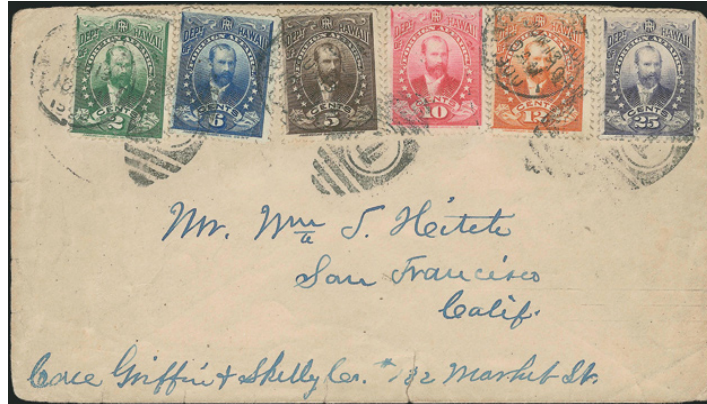 DEPT OF HAWAII
FOREIGN AFFAIRS
CENTS
2
DEPT OF HAWAII
FOREIGN AFFAIRS
CENTS
6
DEPT OF HAWAII
FOREIGN AFFAIRS
CENTS
5
DEPT OF HAWAII
FOREIGN AFFAIRS
CENTS
10
DEPT OF HAWAII
FOREIGN AFFAIRS
CENTS
12
DEPT OF HAWAII
FOREIGN AFFAIRS
CENTS
25
Mr. Wm J.
San Francisco
Calif.
Care Griffin & Skelly Co. Market St.